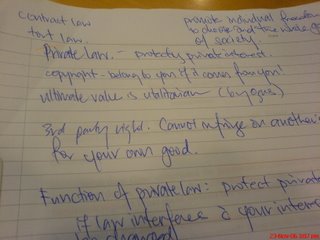 contract law
tort law.
promote individual freedom
to choose and the
of society.
Private law. - protecting private interest.
copyright - belong to you if it comes from you!
ultimate value is utilitarian (by ogus)
3rd party right. Cannot infringe on another's
for your own good.
Function of private law: protect private
if law interfere your interes
23-Nov-06